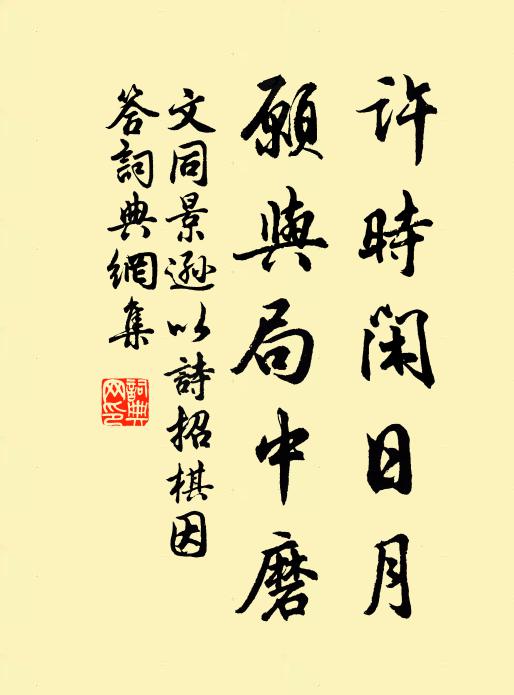 許時閑日月
願與局中磨
文同景遜以詩招棋因
答詞典網集
詞典
网印